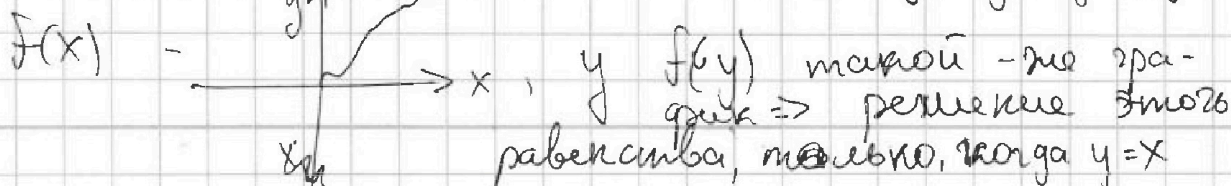 f(x) - y x, у f(y) такой-же гра-
фик => решение этого
равенства, только, когда y=x